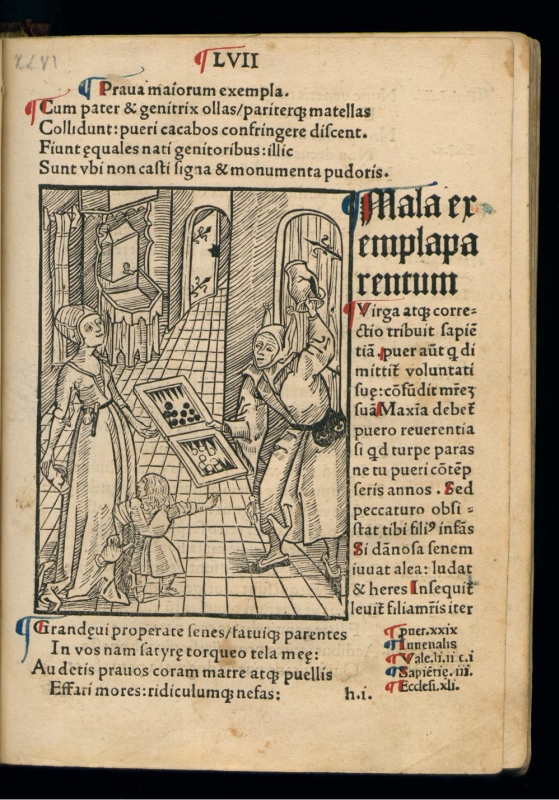 LVII
Praua maiorum exempla.
Cum pater & genitrix ollas/pariterqꝫ matellas
Collidunt: pueri cacabos confringere discent.
Fiunt ęquales nati genitoribus: illic
Sunt vbi non casti signa & monumenta pudoris.
Mala ex
emplapa
rentum
Virga atqꝫ corre=
ctio tribuit sapiē
tiā. puer aūt q di
mittit̄ voluntati
suę: cōfūdit mr̄eꝫ
suā Maxīa debet̄
puero reuerentia
si qd turpe paras
ne tu pueri cōtēp
seris annos. Sed
peccaturo obsi=
stat tibi filiꝰ infās
Si dānosa senem
iuuat alea: ludat
& heres Insequit̄
leuit̄ filia mr̄is iter
Grandęui properate senes/fatuiqꝫ parentes
In vos nam satyrę torqueo tela meę:
Audetis prauos coram matre atqꝫ puellis
Effari mores: ridiculumqꝫ nefas:
h.i.
puer.xxix
Iuuenalis
Vale.li.ii c.i
Sapiētię.iii.
Ecclesi.xli.